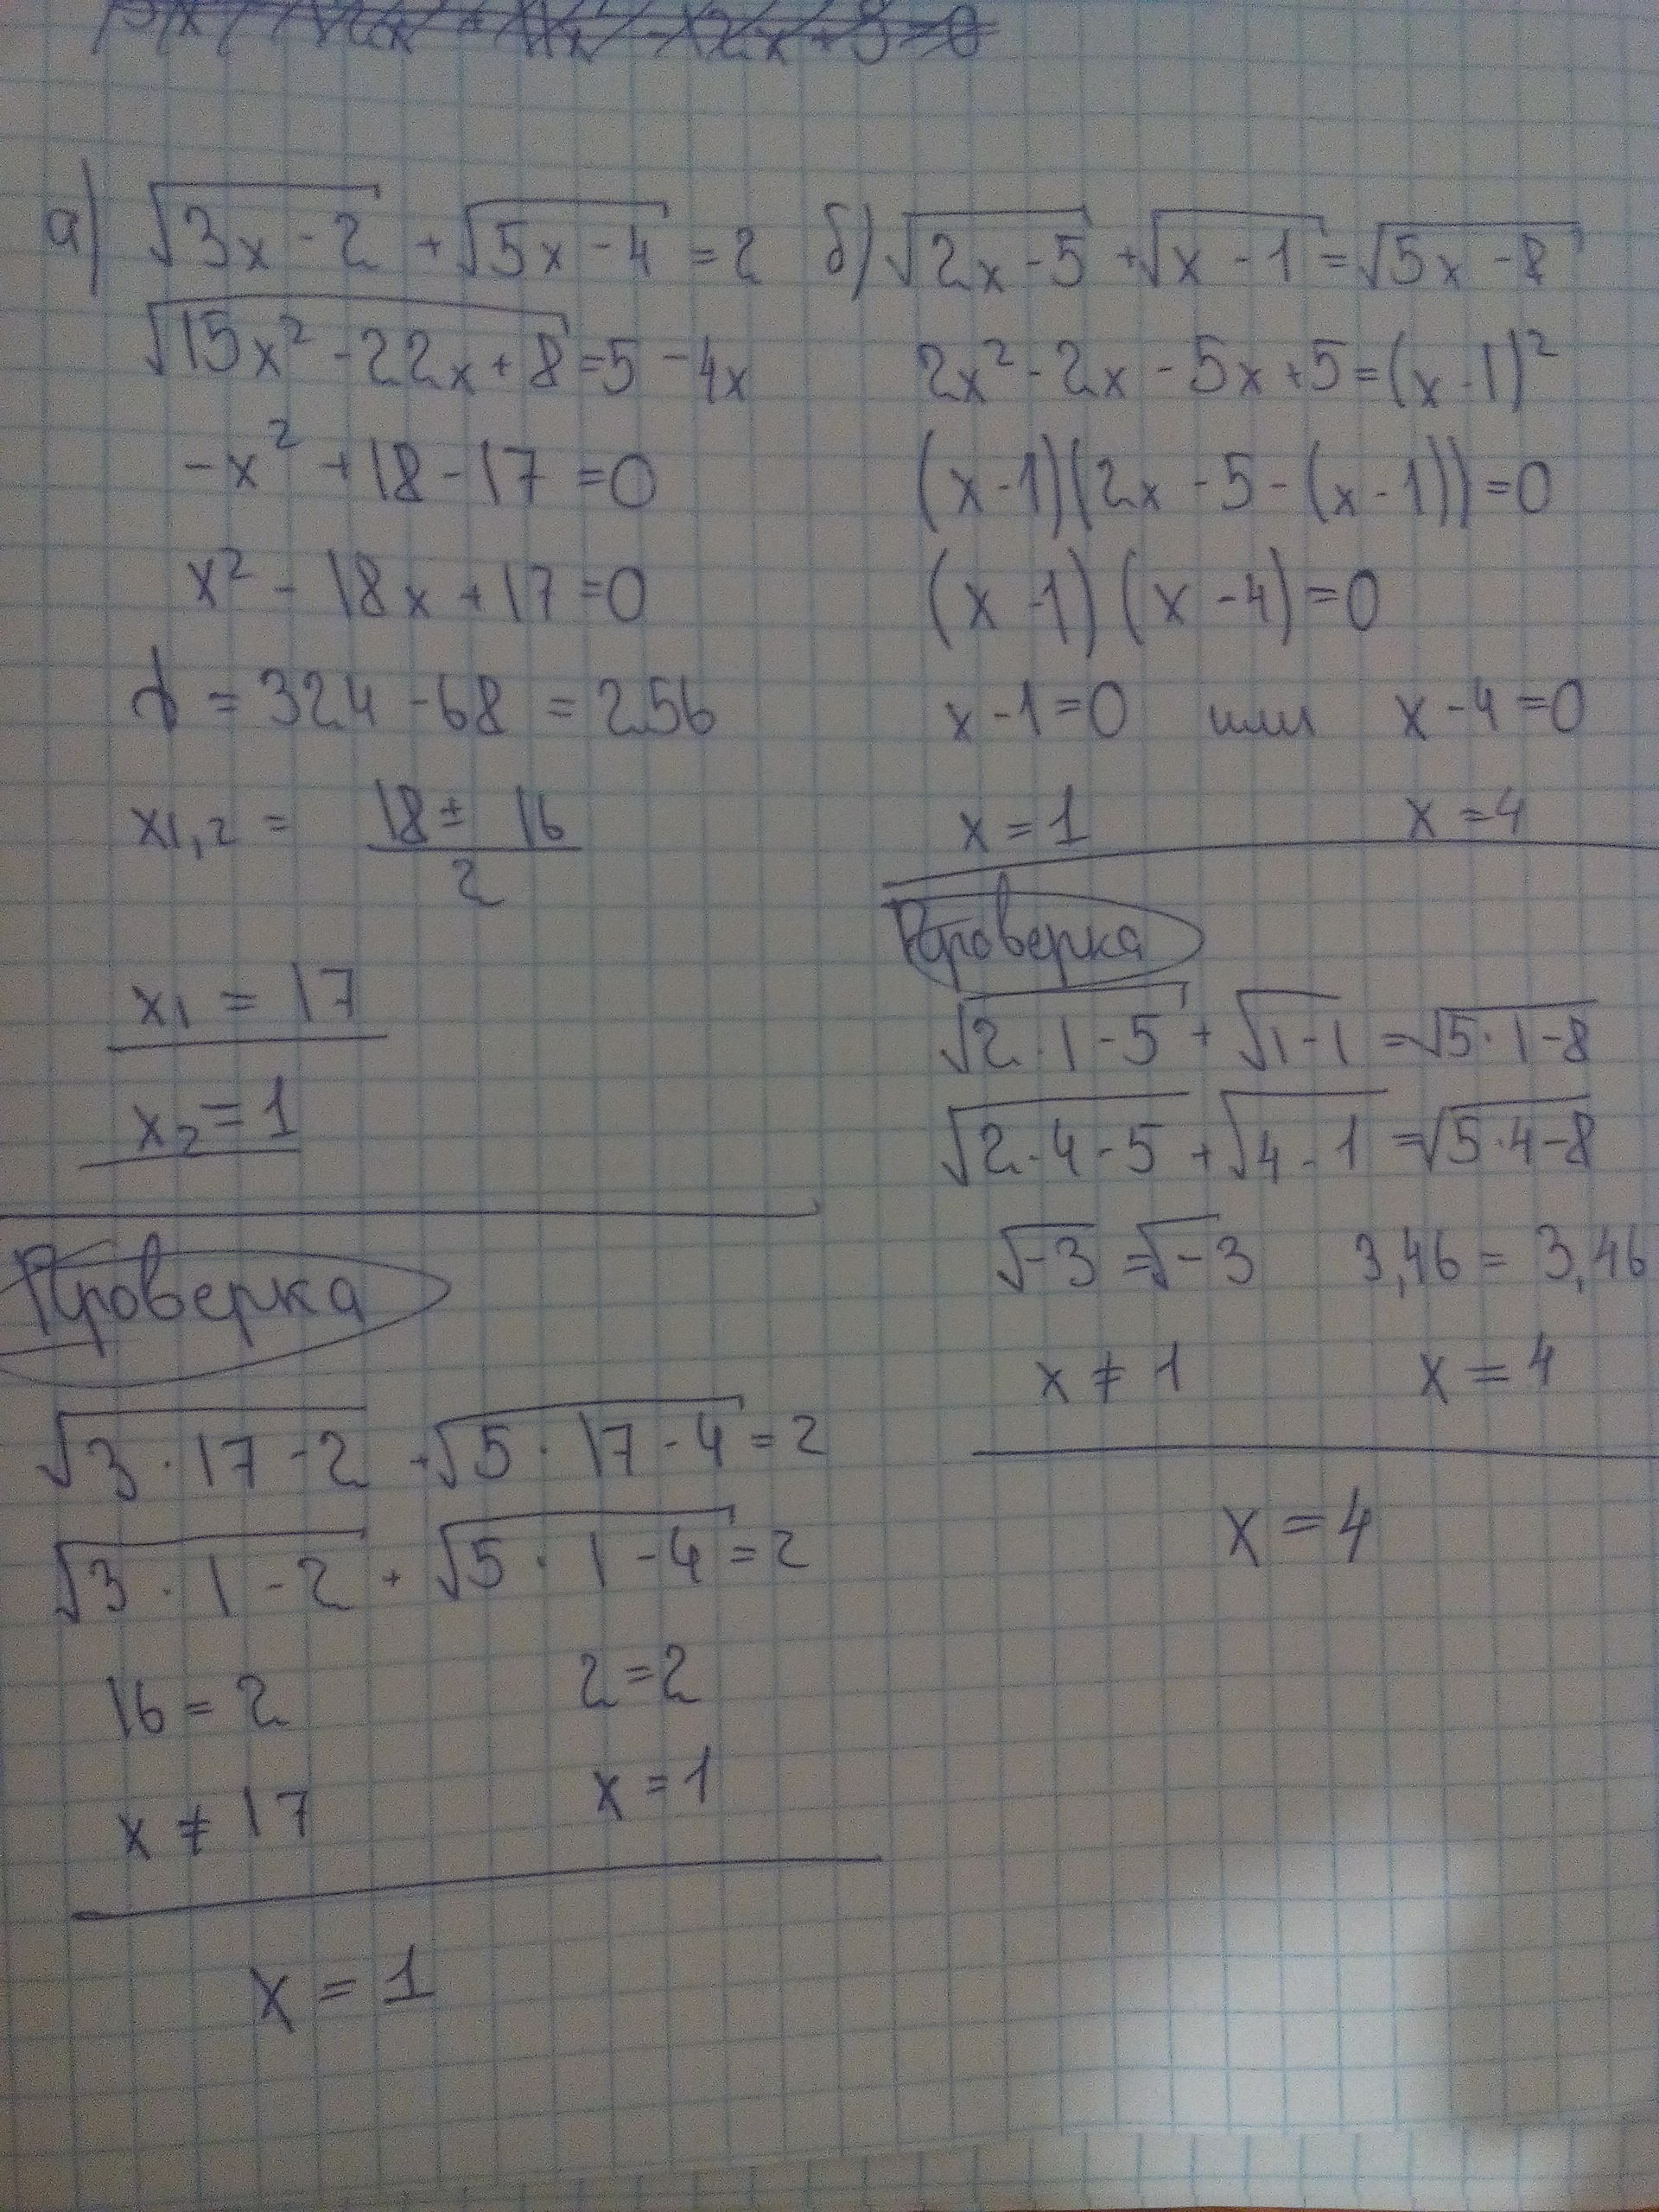 а) √3x - 2 + √5x - 4 = 2
√15x² - 22x + 8 = 5 - 4x
-x² + 18 - 17 = 0
x² - 18x + 17 = 0
D = 324 - 68 = 256
x1,2 = 18 ± 16 / 2
x1 = 17
x2 = 1
Проверка
√3 · 17 - 2 + √5 · 17 - 4 = 2
√3 · 1 - 2 + √5 · 1 - 4 = 2
16 = 2 2 = 2
x ≠ 17 x = 1
x = 1
б) √2x - 5 + √x - 1 = √5x - 8
2x² - 2x - 5x + 5 = (x - 1)²
(x - 1)(2x - 5 - (x - 1)) = 0
(x - 1) (x - 4) = 0
x - 1 = 0 или x - 4 = 0
x = 1 x = 4
Проверка
√2 · 1 - 5 + √1 - 1 = √5 · 1 - 8
√2 · 4 - 5 + √4 - 1 = √5 · 4 - 8
√-3 = √-3 3,46 = 3,46
x ≠ 1 x = 4
x = 4